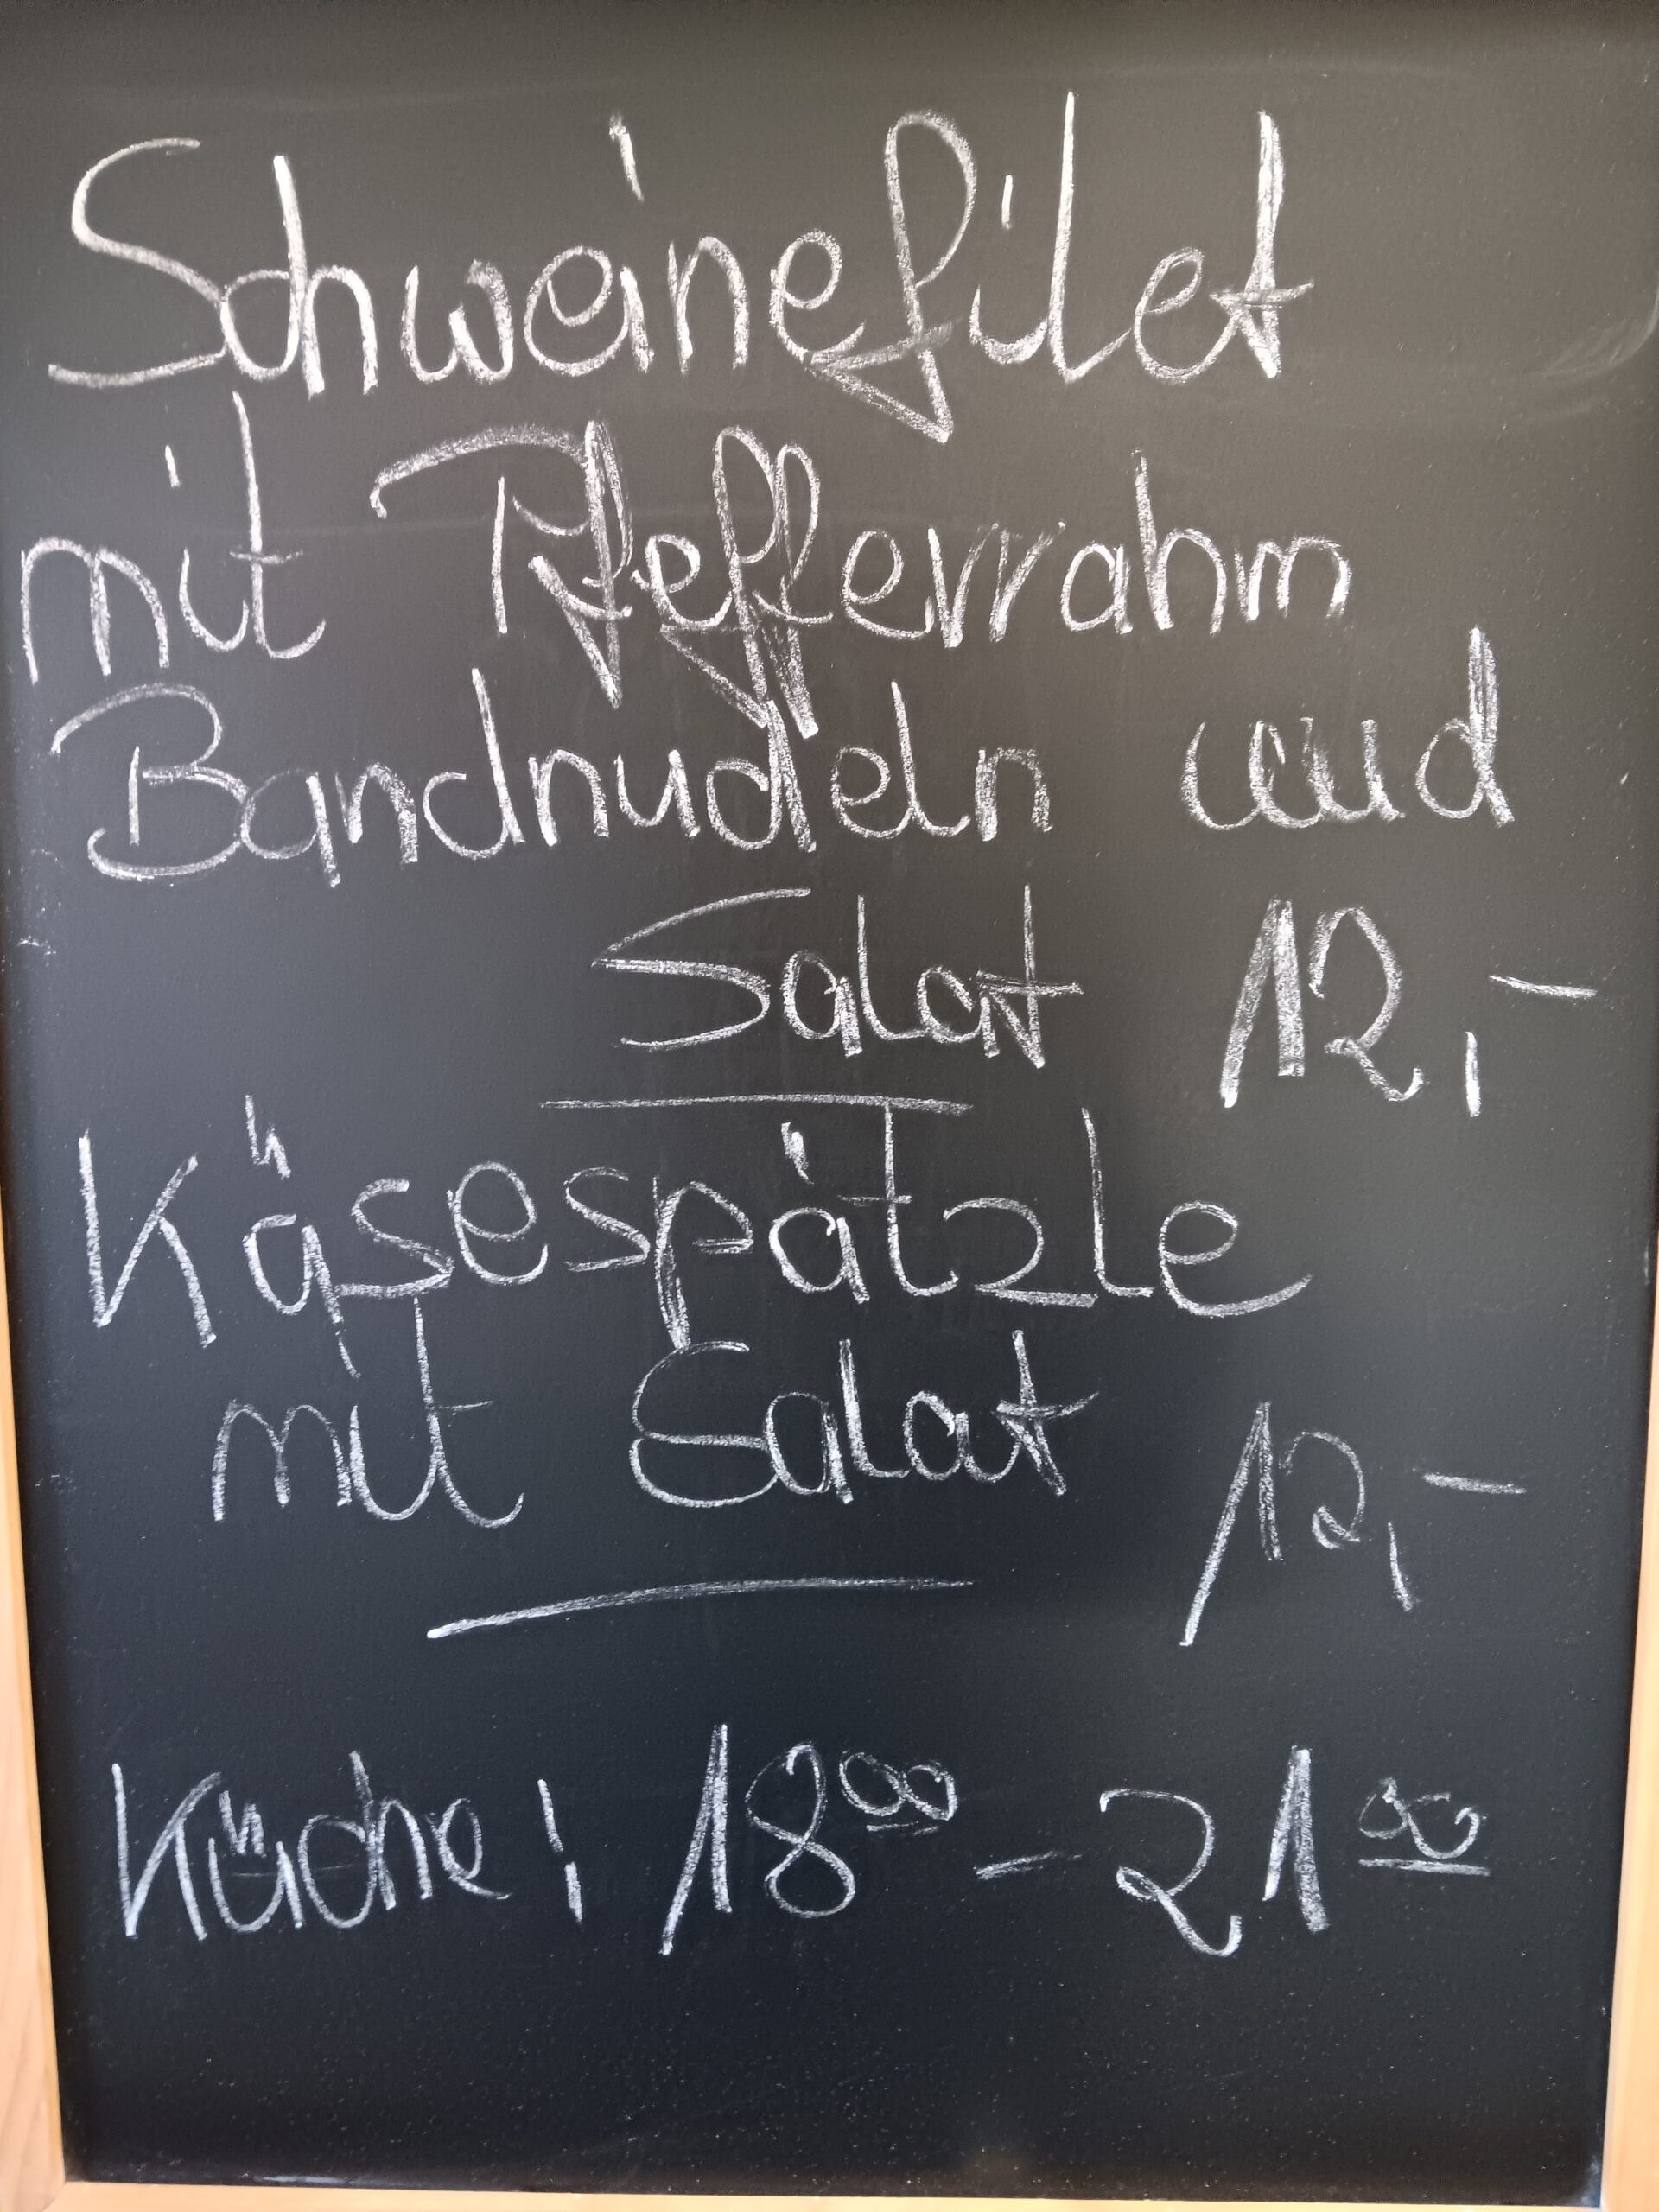 Schweinefilet
mit Pfefferrahm
Bandnudeln und
Salat 12,-
Käsespätzle
mit Salat 12,-
Küche: 18⁰⁰ - 21⁰⁰